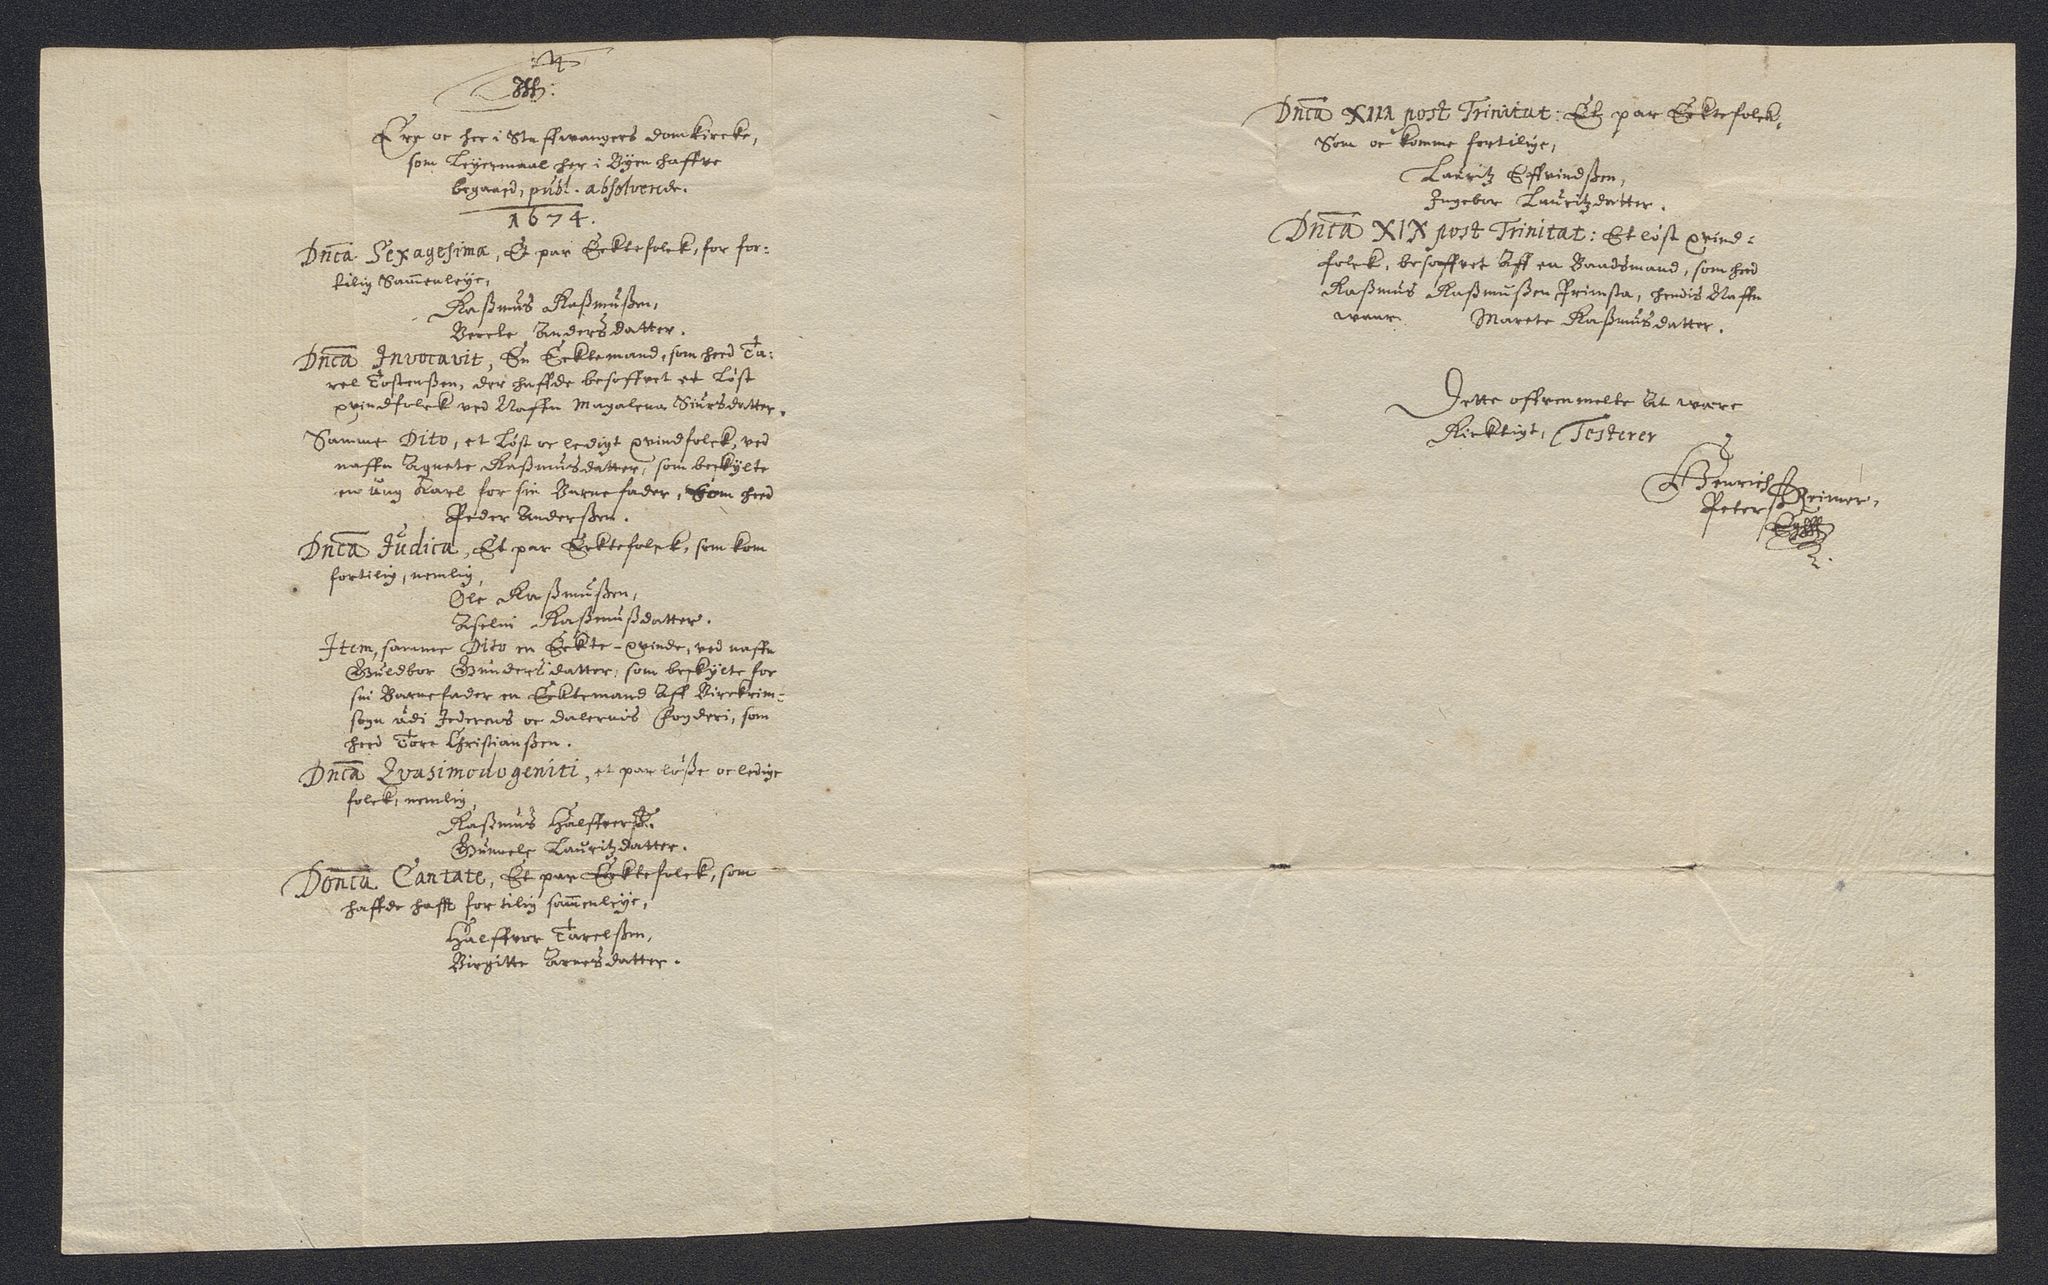 Ere oc her i Staffwangers domkircke,
som Leyermaal her i Byen haffve
begaaed, publ. absolverede.
1674.
Dnca Sexagesima, Et par Ecktefolck, for for-
tilig Sammenleye,
Rasmus Rasmussen,
Berete Andersdatter.
Dnca Invocavit, En Ecktemand, som heed Ta-
rel Tostenssen, der haffde besoffvet et Løst
qvindfolck ved Naffn Magalena Siursdatter.
Samme Dito, et Løst oc ledigt qvindfolck, ved
naffn Agnete Rasmusdatter, som beskylte
en ung Karl for sin Barnefader, som heed
Peder Anderssen.
Dnca Judica, Et par Ecktefolck, som kom
fortilig, nemlig,
Ole Rasmussen,
Aselin Rasmusdatter.
Item, samme Dito en Eckte-qvinde, ved naffn
Guldbor Gundersdatter, som beskylte for
sin Barnefader en Ecktemand Aff Birckrim-
sogn udi Jederens oc dalernis Fogderi, som
heed Tore Christianssen.
Dnca Qvasimodogeniti, et par løsse oc ledige
folck, nemlig,
Rasmus Halffverß.
Gunnele Lauritzdatter.
Donca. Cantate, Et par Ecktefolck, som
haffde hafft for tilig sammenleye,
Halffvor Tarelssen,
Birgitte Arnesdatter.
Dnca XIII post Trinitat: Et par Ecktefolck,
Som oc komme fortilige,
Lauritz Effvindssen,
Ingebor Lauritzdatter.
Dnca XIX post Trinitat: Et løst qvind-
folck, besoffvet Aff en Baadsmand, som heed
Rasmus Rasmussen Primsta, hendis Naffn
waar Marete Rasmusdatter.
Dette offvenmelte At være
Ricktigt, Testerer
Henrich
Peterß Reimer,